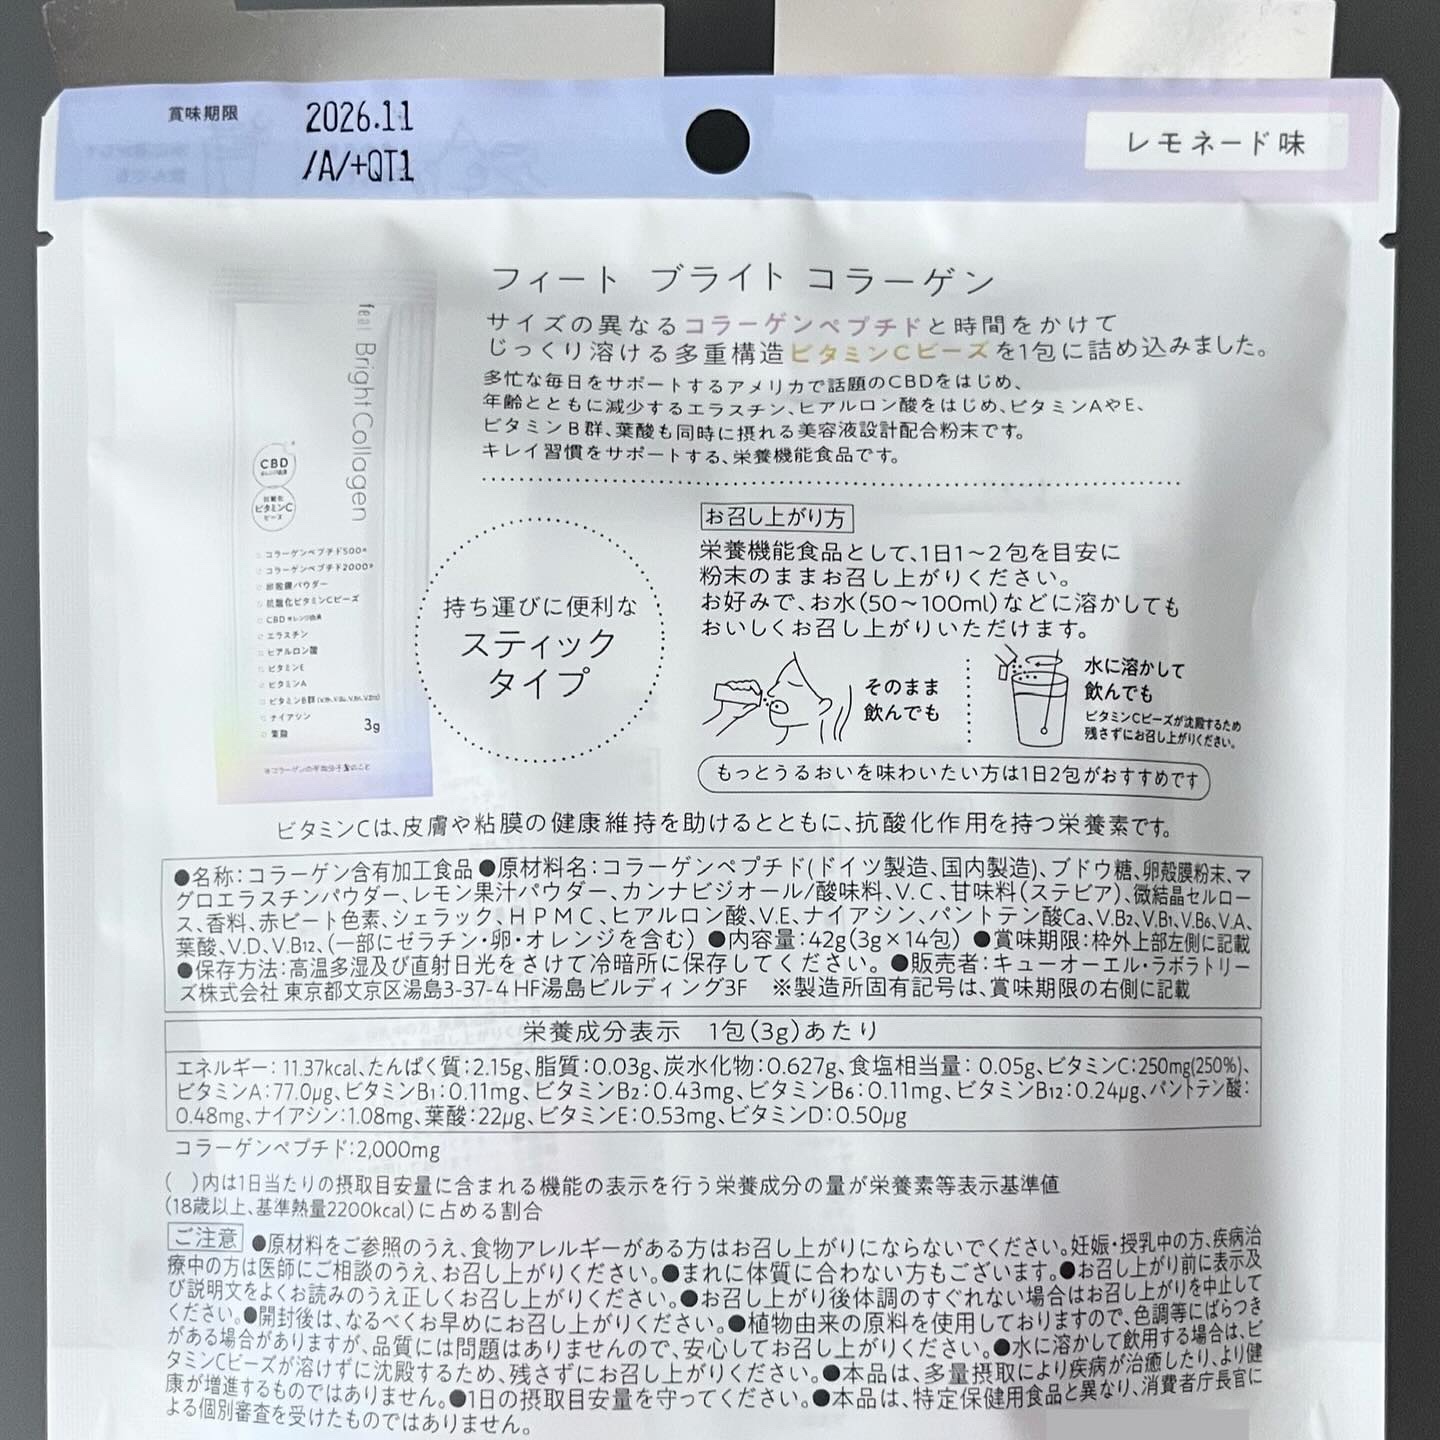 賞味期限
2026.11
/A/+QT1
レモネード味
フィート ブライト コラーゲン
サイズの異なるコラーゲンペプチドと時間をかけて
じっくり溶ける多重構造ビタミンCビーズを1包に詰め込みました。
多忙な毎日をサポートするアメリカで話題のCBDをはじめ、
年齢とともに減少するエラスチン、ヒアルロン酸をはじめ、ビタミンAやE、
ビタミンB群、葉酸も同時に摂れる美容液設計配合粉末です。
キレイ習慣をサポートする、栄養機能食品です。
feat Bright Collagen
CBD
オレンジ由来
抗酸化
ビタミンC
ビーズ
コラーゲンペプチド500*
コラーゲンペプチド2000*
卵殻膜パウダー
抗酸化ビタミンCビーズ
CBD オレンジ由来
エラスチン
ヒアルロン酸
ビタミンE
ビタミンA
ビタミンB群
ナイアシン
葉酸
3g
※コラーゲンの平均分子量のこと
持ち運びに便利な
スティック
タイプ
お召し上がり方
栄養機能食品として、1日1〜2包を目安に
粉末のままお召し上がりください。
お好みで、お水(50〜100ml)などに溶かしても
おいしくお召し上がりいただけます。
そのまま
飲んでも
水に溶かして
飲んでも
ビタミンCビーズが沈殿するため
残さずにお召し上がりください。
もっとうるおいを味わいたい方は1日2包がおすすめです
ビタミンCは、皮膚や粘膜の健康維持を助けるとともに、抗酸化作用を持つ栄養素です。
●名称：コラーゲン含有加工食品 ●原材料名：コラーゲンペプチド(ドイツ製造、国内製造)、ブドウ糖、卵殻膜粉末、マ
グロエラスチンパウダー、レモン果汁パウダー、カンナビジオール/酸味料、V.C、甘味料(ステビア)、微結晶セルロー
ス、香料、赤ビート色素、シェラック、HPMC、ヒアルロン酸、V.E、ナイアシン、パントテン酸Ca、V.B2、V.B1、V.B6、V.A、
葉酸、V.D、V.B12、(一部にゼラチン・卵・オレンジを含む) ●内容量：42g(3g×14包) ●賞味期限：枠外上部左側に記載
●保存方法：高温多湿及び直射日光をさけて冷暗所に保存してください。 ●販売者：キューオーエル・ラボラトリー
ズ株式会社 東京都文京区湯島3-37-4 HF湯島ビルディング3F ※製造所固有記号は、賞味期限の右側に記載
栄養成分表示 1包(3g)あたり
エネルギー：11.37kcal、たんぱく質：2.15g、脂質：0.03g、炭水化物：0.627g、食塩相当量：0.05g、ビタミンC：250mg(250%)、
ビタミンA：77.0μg、ビタミンB1：0.11mg、ビタミンB2：0.43mg、ビタミンB6：0.11mg、ビタミンB12：0.24μg、パントテン酸：
0.48mg、ナイアシン：1.08mg、葉酸：22μg、ビタミンE：0.53mg、ビタミンD：0.50μg
コラーゲンペプチド：2,000mg
( )内は1日当たりの摂取目安量に含まれる機能の表示を行う栄養成分の量が栄養素等表示基準値
(18歳以上、基準熱量2200kcal)に占める割合
ご注意 ●原材料をご参照のうえ、食物アレルギーがある方はお召し上がりにならないでください。妊娠・授乳中の方、疾病治
療中の方は医師にご相談のうえ、お召し上がりください。●まれに体質に合わない方もございます。●お召し上がり前に表示及
び説明文をよくお読みのうえ正しくお召し上がりください。●お召し上がり後体調のすぐれない場合はお召し上がりを中止して
ください。●開封後は、なるべくお早めにお召し上がりください。●植物由来の原料を使用しておりますので、色調等にばらつき
がある場合がありますが、品質には問題はありませんので、安心してお召し上がりください。●水に溶かして飲用する場合は、ビ
タミンCビーズが溶けずに沈殿するため、残さずにお召し上がりください。●本品は、多量摂取により疾病が治癒したり、より健
康が増進するものではありません。●1日の摂取目安量を守ってください。●本品は、特定保健用食品と異なり、消費者庁長官に
よる個別審査を受けたものではありません。